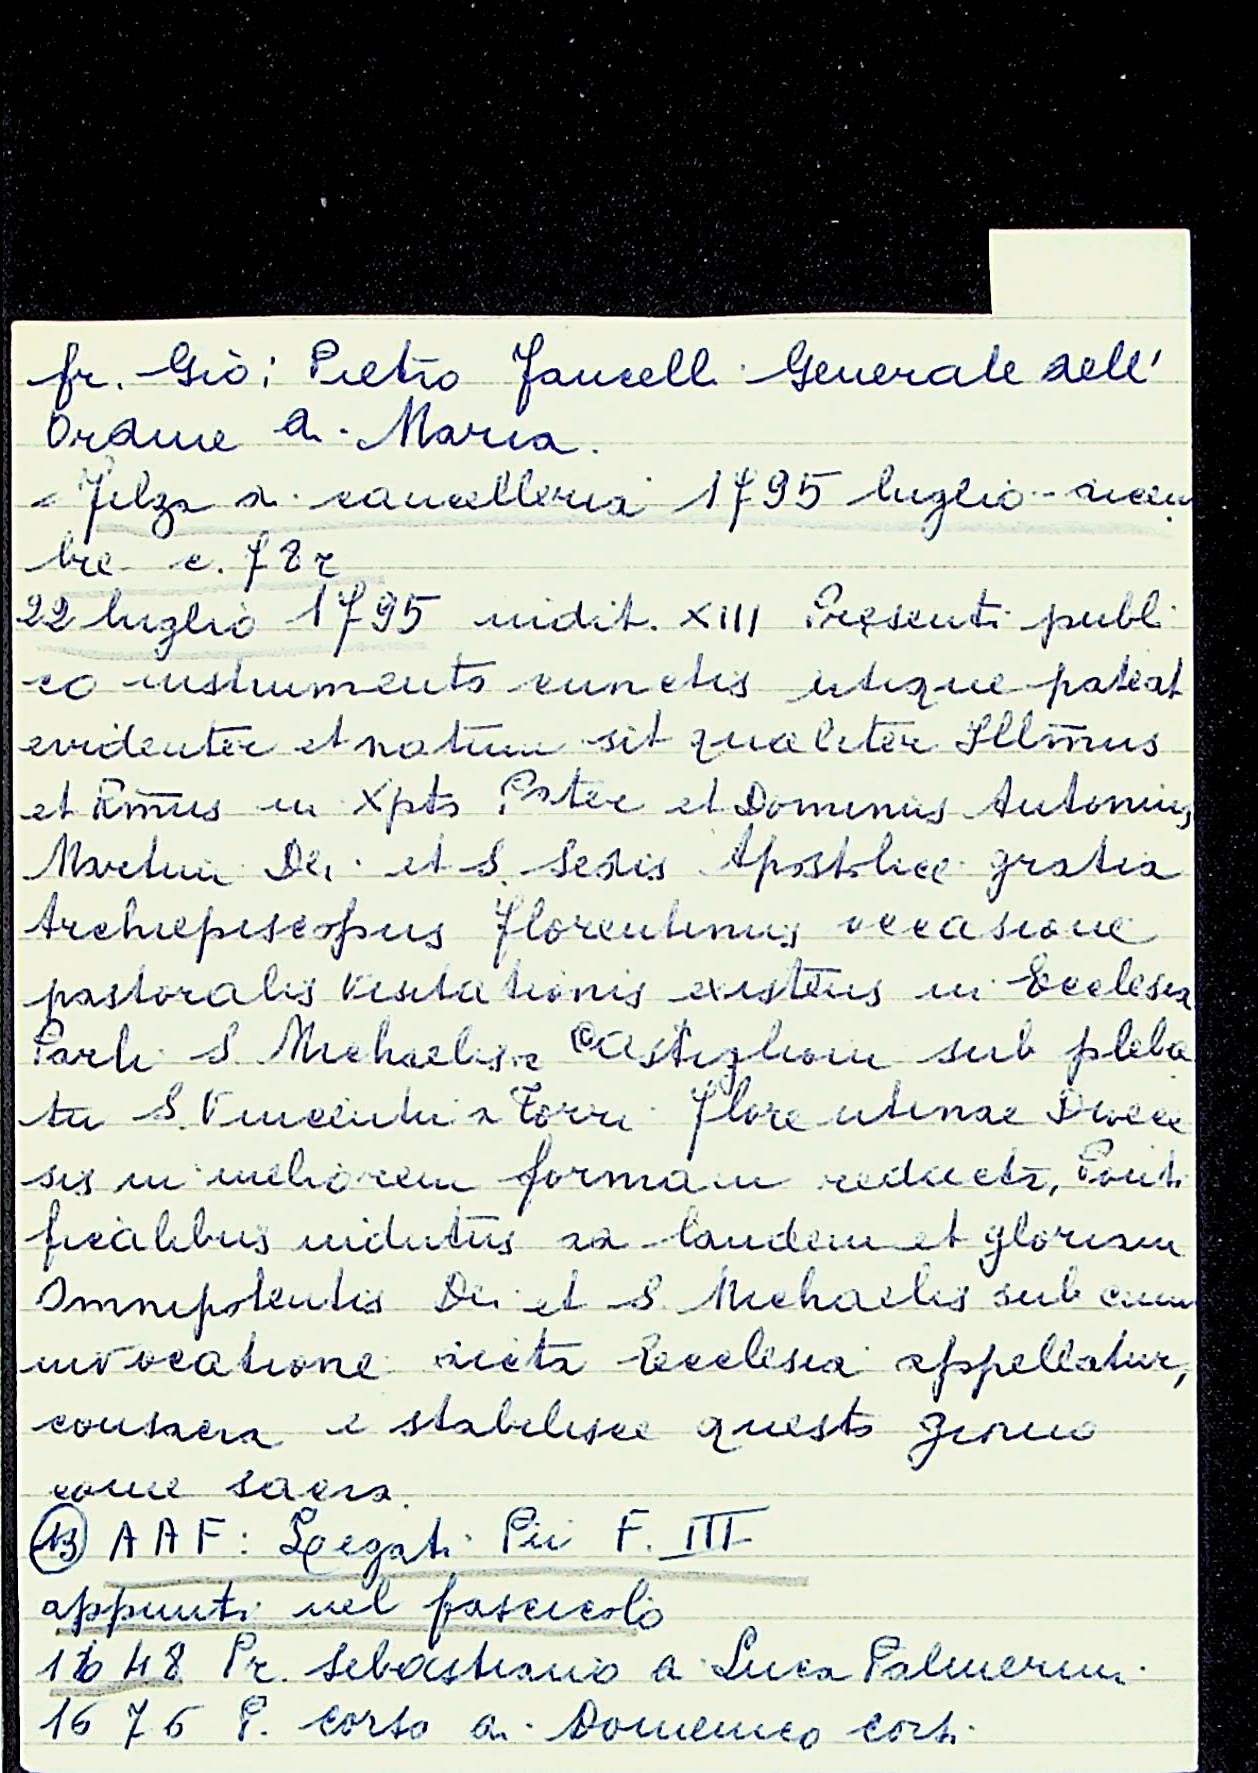 fr. Giò: Pietro Fancelli Generale dell'
Ordine di Maria.
- Filza di cancelleria 1795 luglio - dicem
bre c. 78r
22 luglio 1795 indit. XIII Presenti publi
co instrumento cunctis utique pateat
evidenter et notum sit qualiter Illm̄us
et Rm̄us in Xpto Pater et Dominus Antonius
Martini Dei et S. Sedis Apostolice gratia
Archiepiscopus florentinus occasione
pastoralis visitationis existens in Ecclesia
Parli S. Michaelis a Castiglioni sub pleba
tu S. Vincentii a Torri florentinae Dioece
sis in meliorem formam reducta, Ponti
ficalibus indutus ad laudem et gloriam
Omnipotentis Dei et S. Michaelis sub cuius
invocatione dicta Ecclesia appellatur,
consacra e stabilisce questo giorno
come sacra.
(13) AAF: Legati Pii F. III
appunti nel fascicolo
1648 Pr. Sebastiano di Luca Palmerini
1676 P. Corso di Domenico Corsi